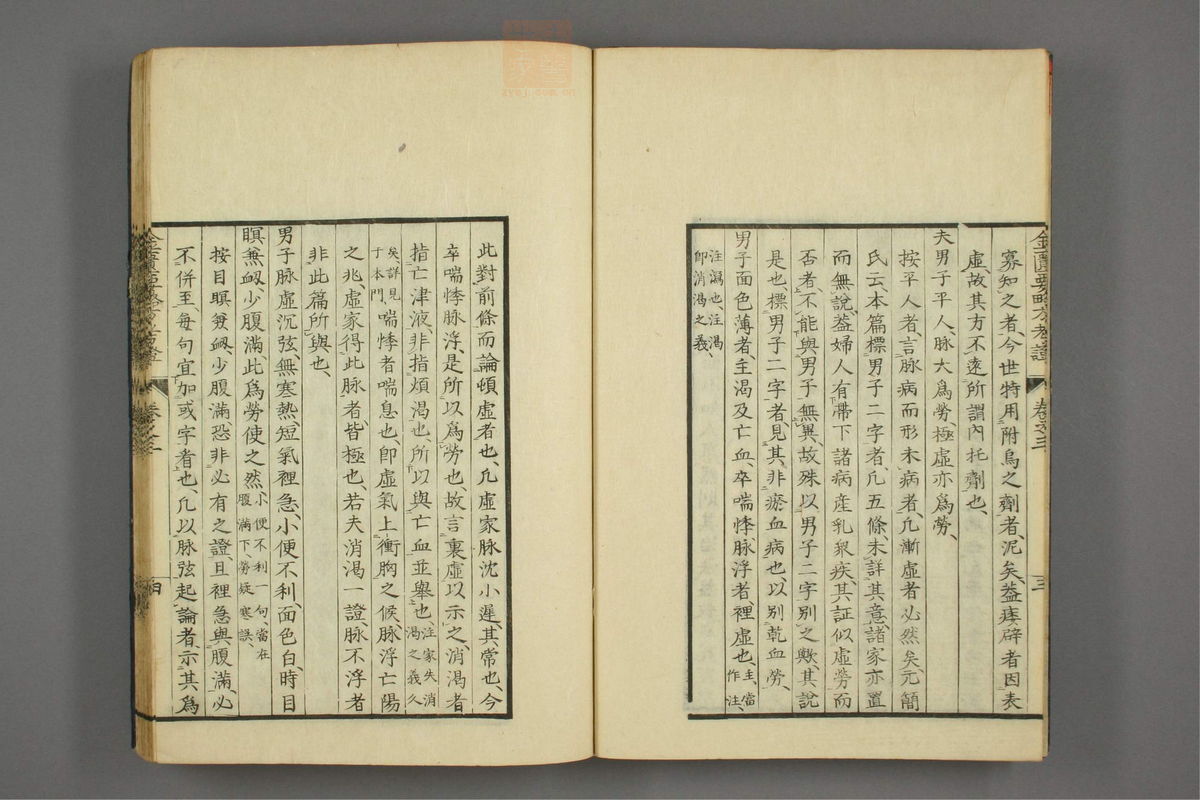 寡知之者、今世特用附烏之劑者、泥矣、蓋痿躄者因表
虛、故其方不遠、所謂內托劑也、
夫男子平人、脉大爲勞、極虛亦爲勞、
按平人者、言脉病而形未病者、凡漸虛者必然矣、元簡
氏云、本篇標男子二字者、凡五條、未詳其意、諸家亦置
而無說、蓋婦人有帶下諸病産乳衆疾、其証似虛勞而
否者、不能與男子無異、故殊以男子二字別之歟、其說
是也、標男子二字者、見其非瘀血病也、以別乾血勞、
男子面色薄者、主渴及亡血、卒喘悸、脉浮者裡虛也、主、當作注、
注瀉也、注渴即消渴之義、
此對前條而論頓虛者也、凡虛家脉沈小遲、其常也、今
卒喘悸脉浮、是所以爲勞也、故言裏虛以示之、消渴者
指亡津液、非指煩渴也、所以與亡血並舉也、注家失消渴之義久
矣、詳見于本門、喘悸者喘息也、卽虛氣上衝胸之候、脉浮亡陽
之兆、虛家得此脉者、皆極也、若夫消渴一證、脉不浮者
非此篇所與也、
男子脉虛沉弦、無寒熱、短氣裡急、小便不利、面色白、時目
瞑兼衂、少腹滿、此爲勞使之然、小便不利一句、當在腹滿下、勞疑寒誤、
按目瞑兼衂、少腹滿、恐非必有之證、且裡急與腹滿、必
不併至、每句宜加或字看也、凡以脉弦起論者、示其爲
卷之三
三
四